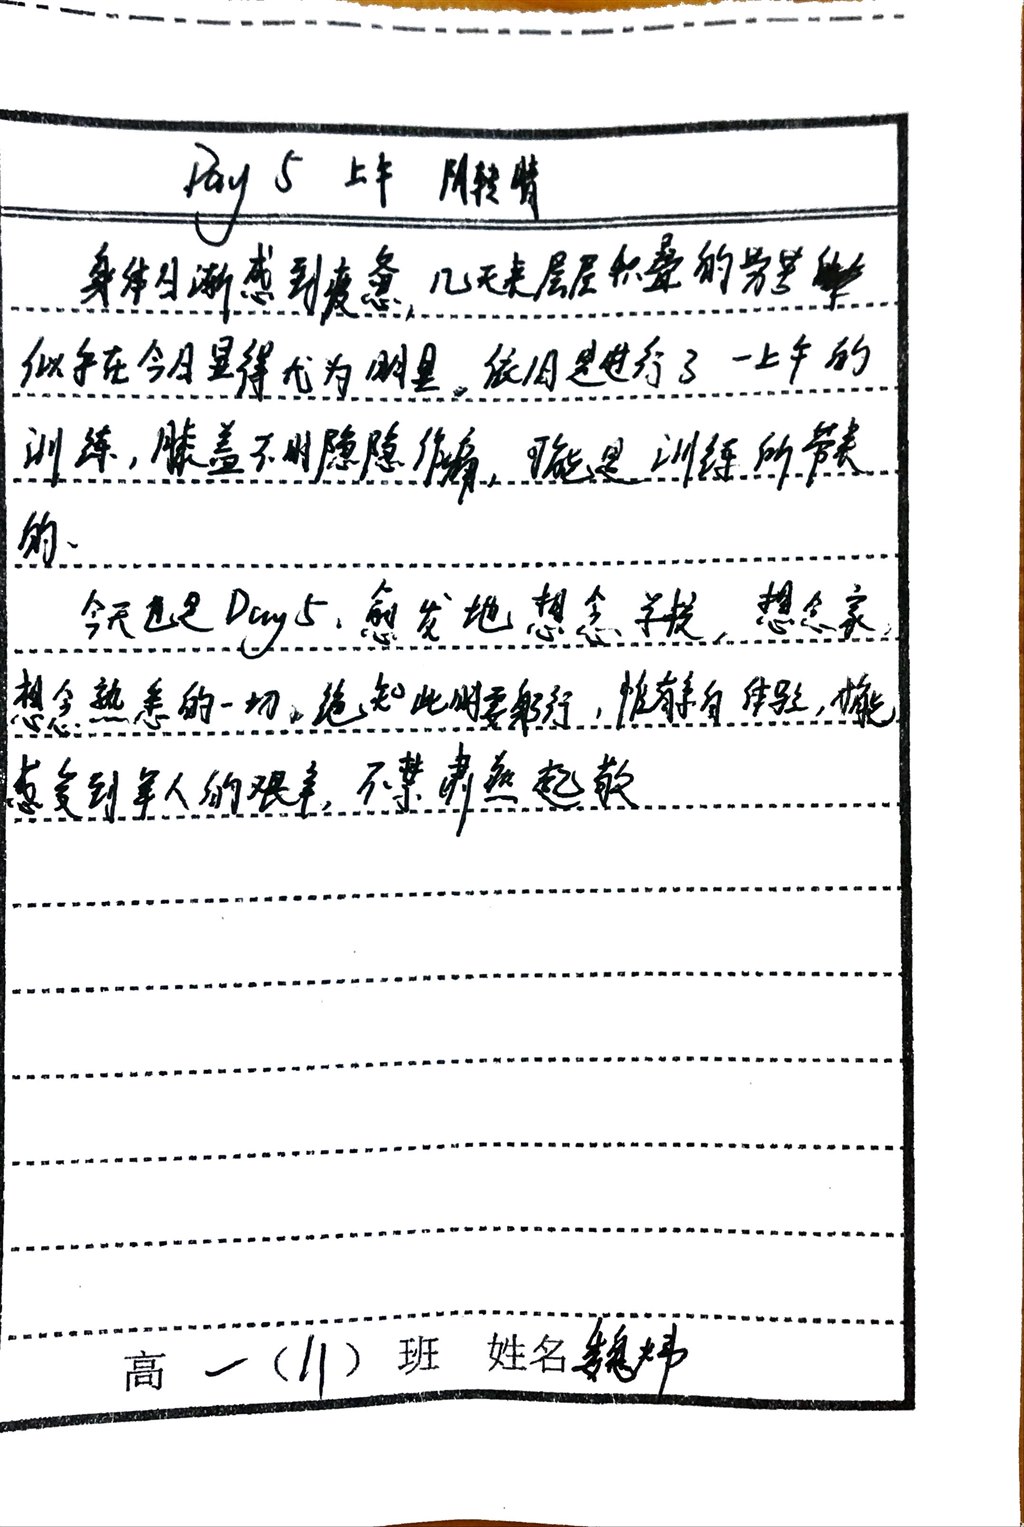 Day 5 上午 阴转晴
身体日渐感到疲惫,几天来层层积叠的劳苦
似乎在今日显得尤为明显。依旧是进行了一上午的
训练,膝盖不时隐隐作痛,可能是训练所带来
的、
今天也是Day5、愈发地想念学校,想念家,
想念熟悉的一切。绝知此明要躬行,惟有亲自体验,才能
感受到军人的艰辛,不禁肃然起敬
高一(11)班 姓名 魏炜